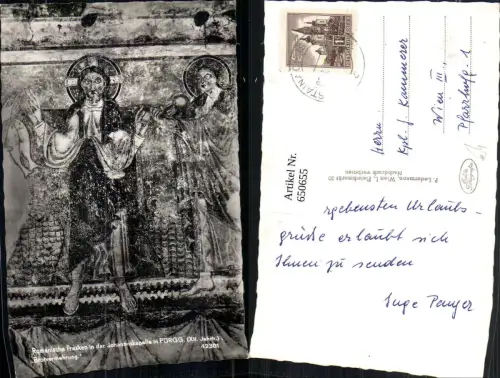 Romanische Fresken in der Johanneskapelle in PÜRGG. (XII. Jahrh.)
"Brotvermehrung"
42301
Herrn
Kpl. J. Kammerer
Wien III,
Pfarrhofg. 1
P. Ledermann, Wien I, Fleischmarkt 20
Nachdruck verboten
Artikel Nr.
650655
Urlaubs-
grüße erlaubt sich
Ihnen zu senden
Inge